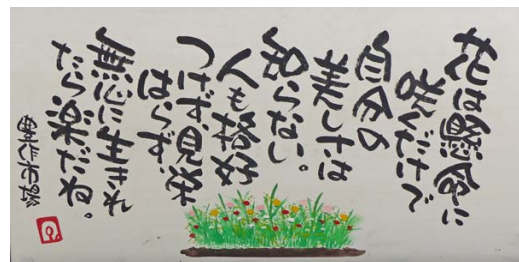 花は懸命に
咲くだけで
自分の
美しさは
知らない。
人も格好
つけず、見栄
はらず、
無心に生きれ
たら楽だね。
豊作市場